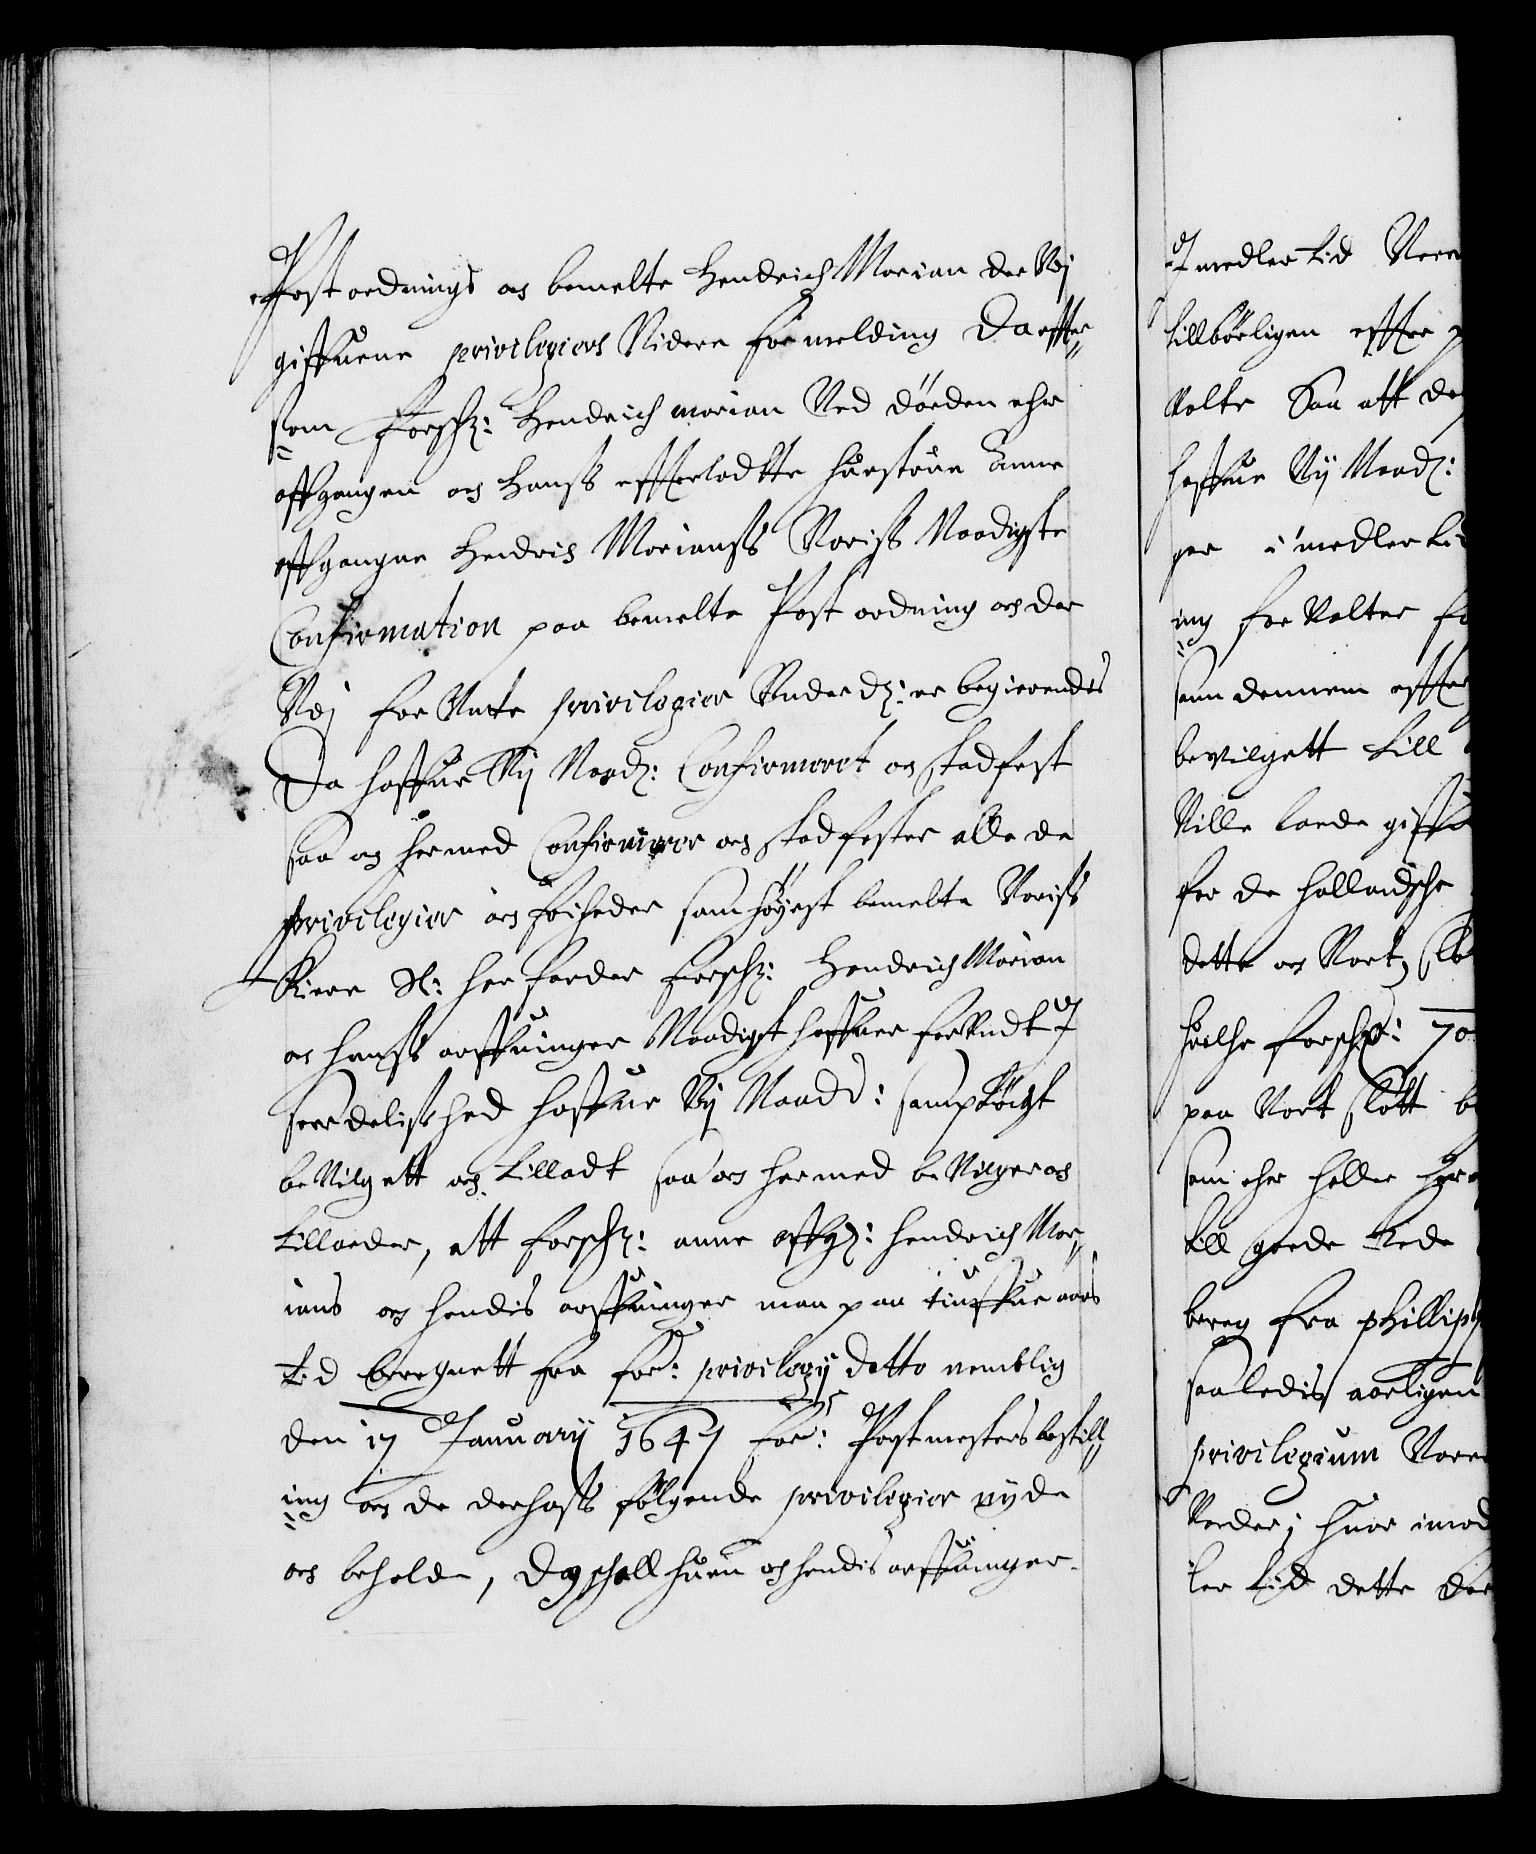 Postordnings oc bemelte Hendrich Morian der Vdj
giffuene privilegiers Videre formelding Da effter
som Forschr: Hendrich morian Ved döeden ehr
affgangen och Hanss effterladtte hüstrue Anne
affgangne Hendrich Morianss Voriss Naadigste
Confirmation paa bemelte Post ordning och der
Vdj for Vnte privilegier Vnderd: er begierendis
Da haffuer Vij Naad: Confirmeret oc stadfest
saa oc hermed Confirmerer och stadfester alle de
privilegier och friheder som höyest bemelte Voriss
Kiere H: her fader Forschr: Hendrich Morian
oc hanss arffuinger Naadigst haffuer forVndt J
seerdelisshed haffuer Vij Naad: samptöcht
be Vilgett och tilladt saa och hermed be Vilger och
tillader, att forschr: anne affg: Hendrich Mor
ians och hendis arffuinger maa paa tiuffue aars
tid beregnett fra for: privilegij datto nemblig
den 17 Januarij 1647 for: Postmesters bestill
ing och de derhoss fölgende privilegier nyde
och beholde, Dog schall huen och hendis arffuinger
J medler tid Vere
tillbörligen effter
Volte Saa att de
haffuer Vij Naad:
ger i medler ti
ing for Valter fo
som dennem effter
bevilgett till
Ville lade giffu
for de hollandsche
dette och Vort, Sl
huilche forschr: 70
paa Vort slott b
som eher heller her
till goede Rede
bereg fra phillip
saaledis aarligen
privilegium Vore
Vorder; huor imod
ler tid dette der